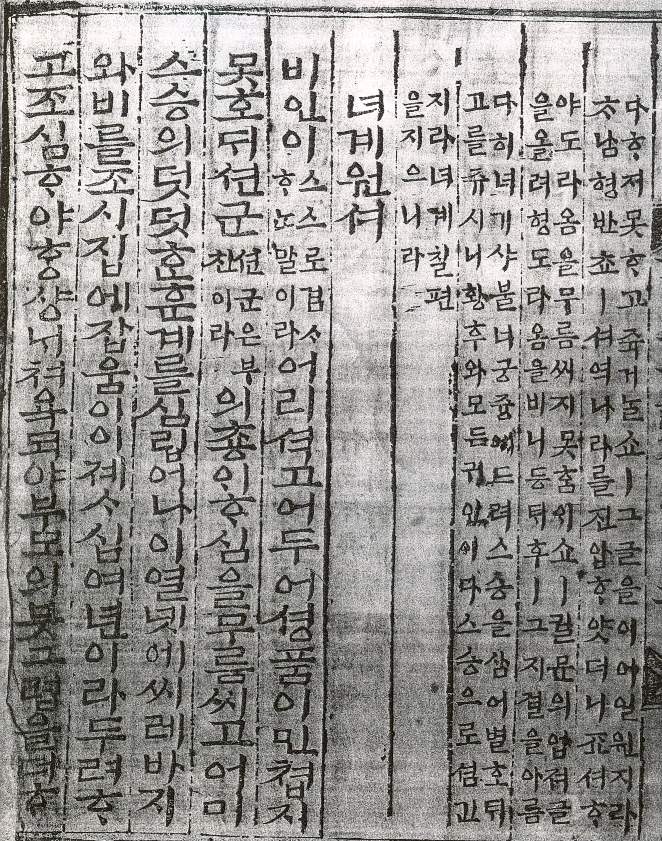 다ᄒᆞ저못ᄒᆞ고쥭거ᄂᆞᆯ쇼ㅣ그글을이어일원지라
ᄎᆞ남형반쵸ㅣ셔역나라를진압ᄒᆞ얏더니죠셔ᄒᆞ
야도라옴을무름씨지못홈이쇼ㅣ궐문의압셔글
을올려형도라옴을비니등튀후ㅣ그지졀을아름
다히녀개샤불너궁즁애드려스승을삼어별호튀
고를쥬시니황후와모든귀인이다스승으로셤긴
지라녀계칠편
을지으니라
녀계원셔
비인이스스로겸ᄉᆞᄒᆞᄂᆞᆫ말이라어리셕고어두어셩품이민쳡지
못호뒤션군션군은부친이라의춍인ᄒᆞ심을무룹씨고어미
스승의덧덧ᄒᆞᆫ훈계를심립어나이열넷에씨레바지
와비를조시집에잡움이이젯ᄉᆞ십여년이라두려ᄒᆞ
고조심ᄒᆞ야ᄒᆞᆼ샹욕되야부모의붓그렴을더ᄒᆞ